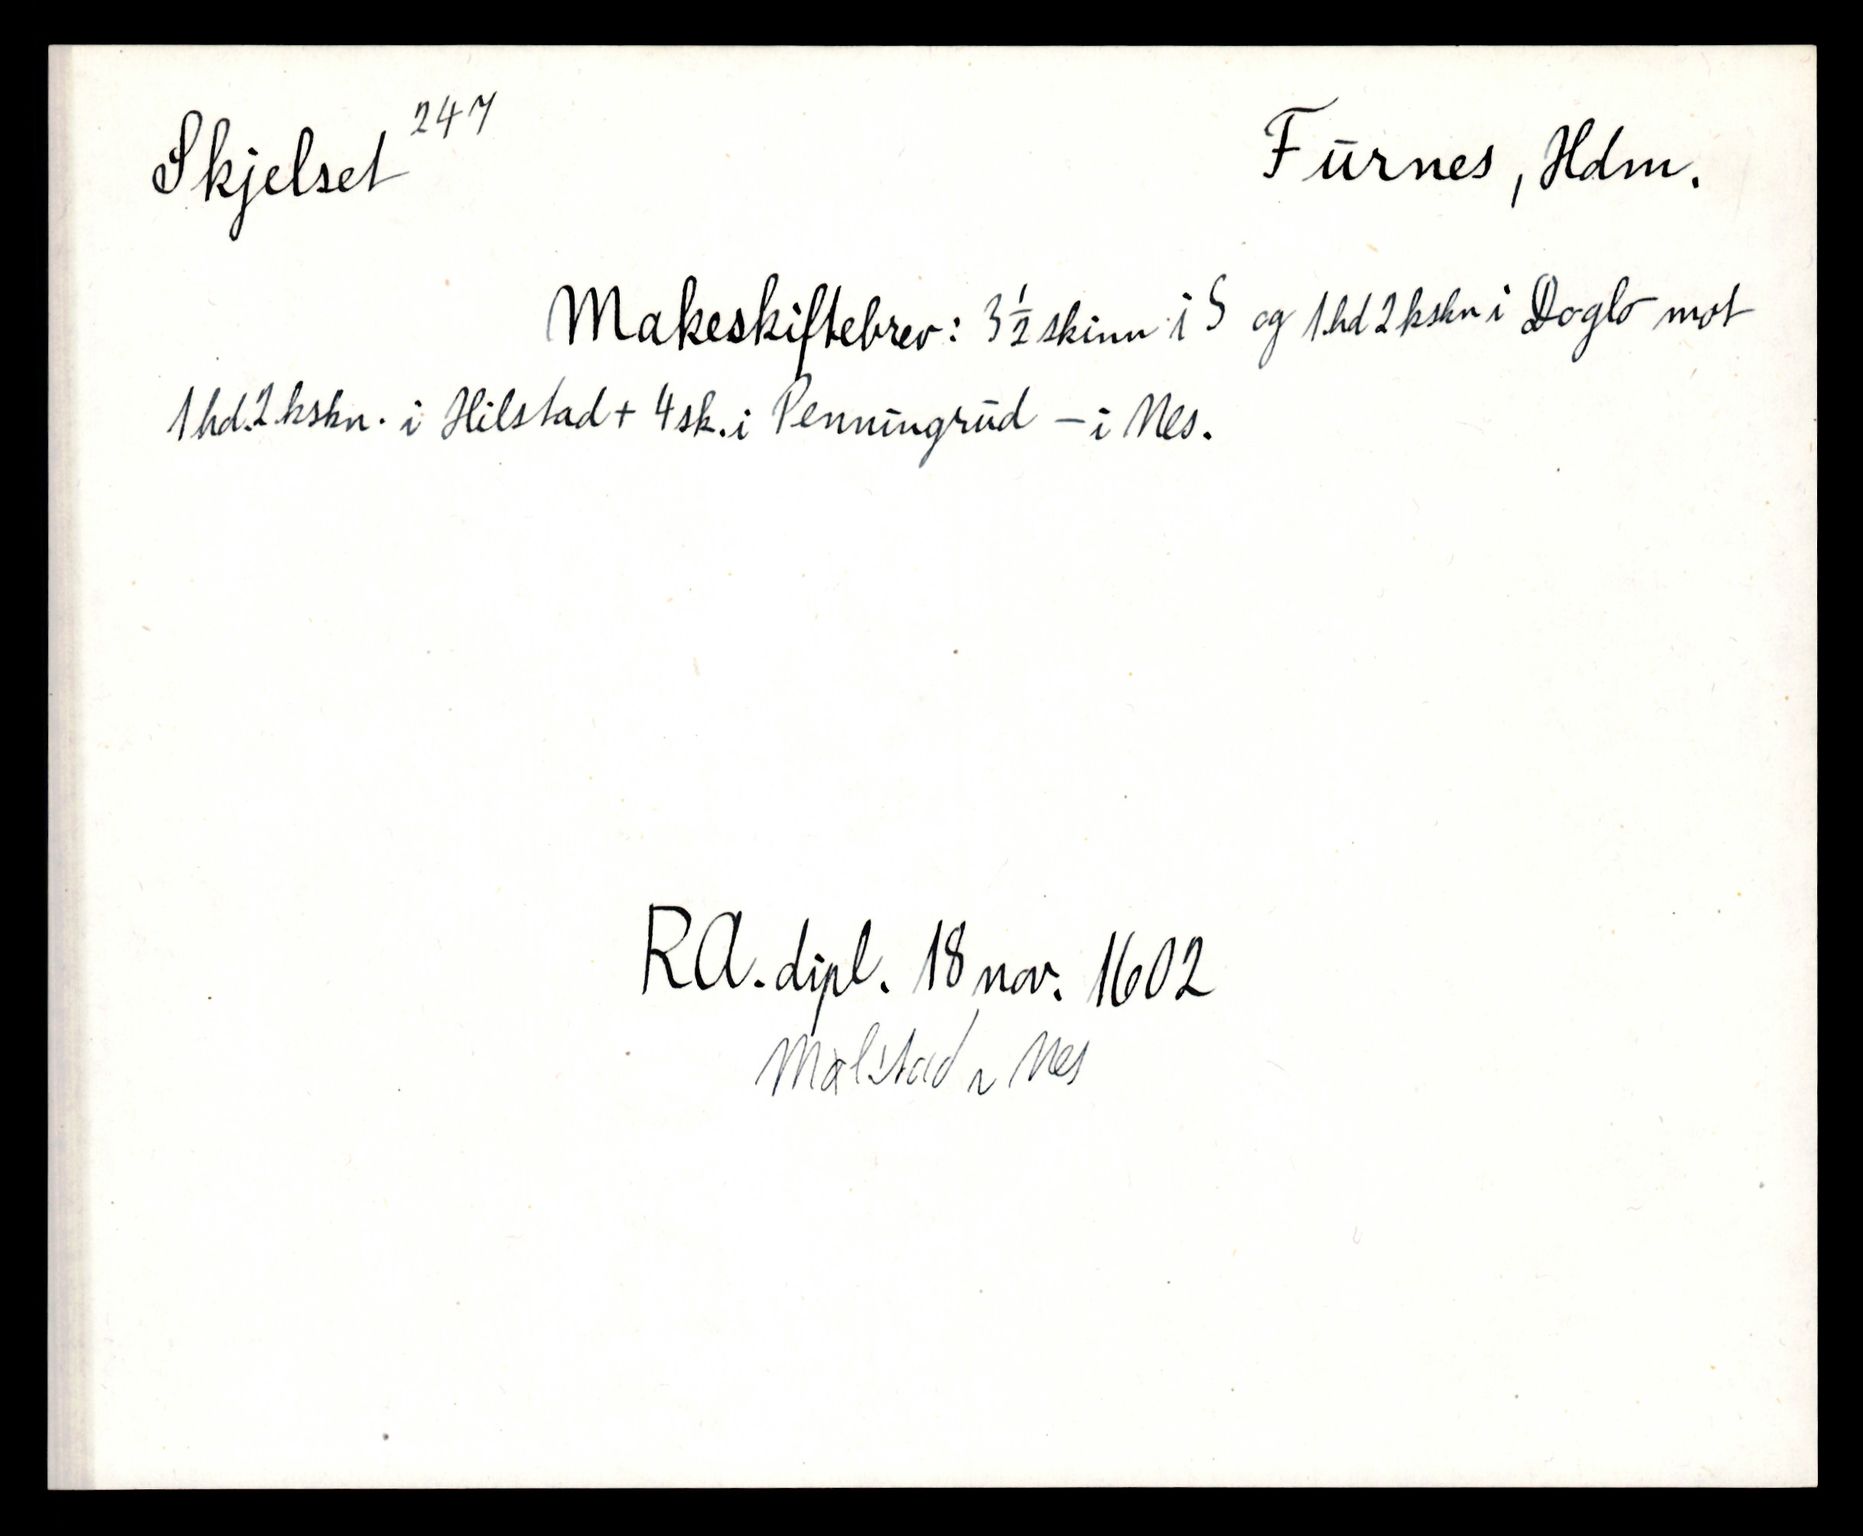 Skjelset 247
Furnes, Hdm.
Makeskiftebrev: 3 ½ skinn i S og 1 hd 2 kskn i Doglo mot
1 hd. 2 kskn. i Hilstad + 4 sk. i Penningrud – i Nes.
RA. dipl. 18 nov. 1602
Malstad i Nes